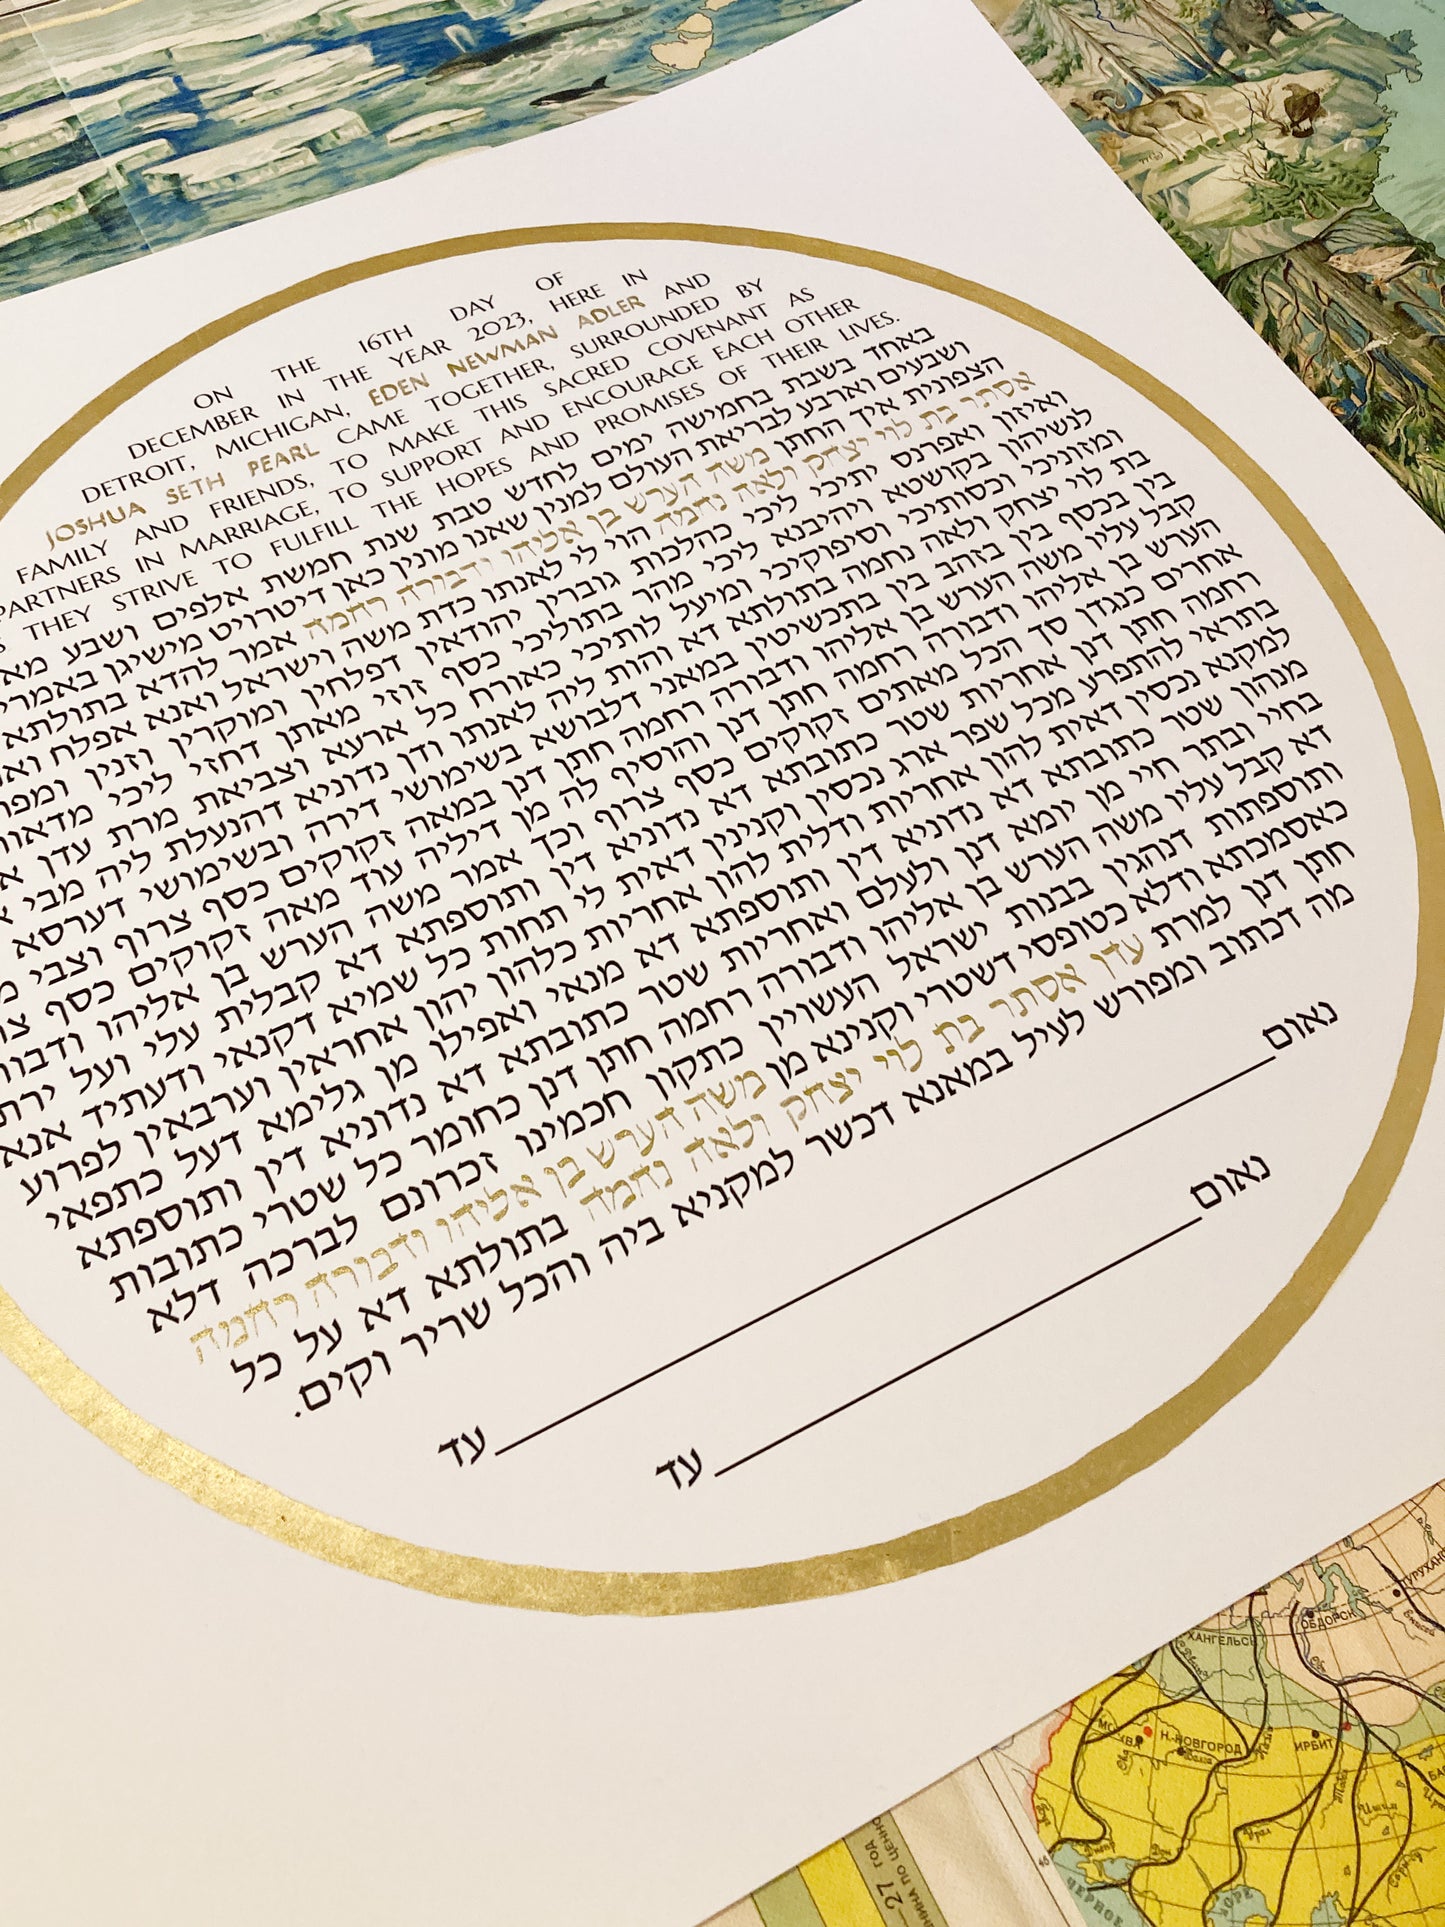 ON THE 16TH DAY OF
DECEMBER IN THE YEAR 2023, HERE IN
DETROIT, MICHIGAN, EDEN NEWMAN ADLER AND
JOSHUA SETH PEARL CAME TOGETHER, SURROUNDED BY
FAMILY AND FRIENDS, TO MAKE THIS SACRED COVENANT AS
PARTNERS IN MARRIAGE, TO SUPPORT AND ENCOURAGE EACH OTHER
THEY STRIVE TO FULFILL THE HOPES AND PROMISES OF THEIR LIVES.
באחד בשבת בחמישה ימים לחדש טבת שנת חמשת אלפים ושבע
ושבעים וארבע לבריאת העולם למנין שאנו מונין כאן דיטרויט מישיגן
הצפונית איך החתן משה הערש בן אליהו ודבורה רחמה אמר להדא בתולתא
אסתר בת לוי יצחק ולאה נחמה הוי לי לאנתו כדת משה וישראל ואנא אפלח
ואיזון ואפרנס יתיכי ליכי כהלכות גוברין יהודאין דפלחין ומוקרין וזנין
לנשיהון בקושטא ויהיבנא ליכי מהר בתוליכי כסף זוזי מאתן דחזי ליכי
ומזוניכי וכסותיכי וסיפוקיכי ומיעל לותיכי כאורח כל ארעא וצביאת מרת עדן
בת לוי יצחק ולאה נחמה בתולתא דא והות ליה לאנתו ודן נדוניא דהנעלת ליה מבי
בין בכסף בין בזהב בין בתכשיטין במאני דלבושא בשימושי דירה ובשימושי דערסא
קבל עליו משה הערש בן אליהו ודבורה רחמה חתן דנן במאה זקוקים כסף צרוף וצבי
הערש בן אליהו ודבורה רחמה חתן דנן והוסיף לה מן דיליה עוד מאה זקוקים כסף
אחרים כנגדן סך הכל מאתים זקוקים כסף צרוף וכך אמר משה הערש בן אליהו
רחמה חתן דנן אחריות שטר כתובתא דא נדוניא דין ותוספתא דא קבלית עלי ועל
בתראי להתפרע מכל שפר ארג נכסין וקנינין דאית לי תחות כל שמיא דקנאי ודעתיד אנא
למקנא נכסין דאית להון אחריות ודלית להון אחריות כלהון יהון אחראין וערבאין לפרוע
מנהון שטר כתובתא דא נדוניא דין ותוספתא דא מנאי ואפילו מן גלימא דעל כתפאי
בחיי ובתר חיי מן יומא דנן ולעלם ואחריות שטר כתובתא דא נדוניא דין ותוספתא
דא קבל עליו משה הערש בן אליהו ודבורה רחמה חתן דנן כחומר כל שטרי כתובות
ותוספתות דנהגין בבנות ישראל העשויין כתקון חכמינו זכרונם לברכה דלא
כאסמכתא ודלא כטופסי דשטרי וקנינא מן משה הערש בן אליהו ודבורה רחמה
חתן דנן למרת עדן אסתר בת לוי יצחק ולאה נחמה בתולתא דא על כל
מה דכתוב ומפורש לעיל במאנא דכשר למקניא ביה והכל שריר וקים.
נאום עד
נאום עד
ОБДОРСК
МОСКВА
Н.-НОВГОРОД
ИРБИТ
ЧЕРНОЕ
27 ГОД